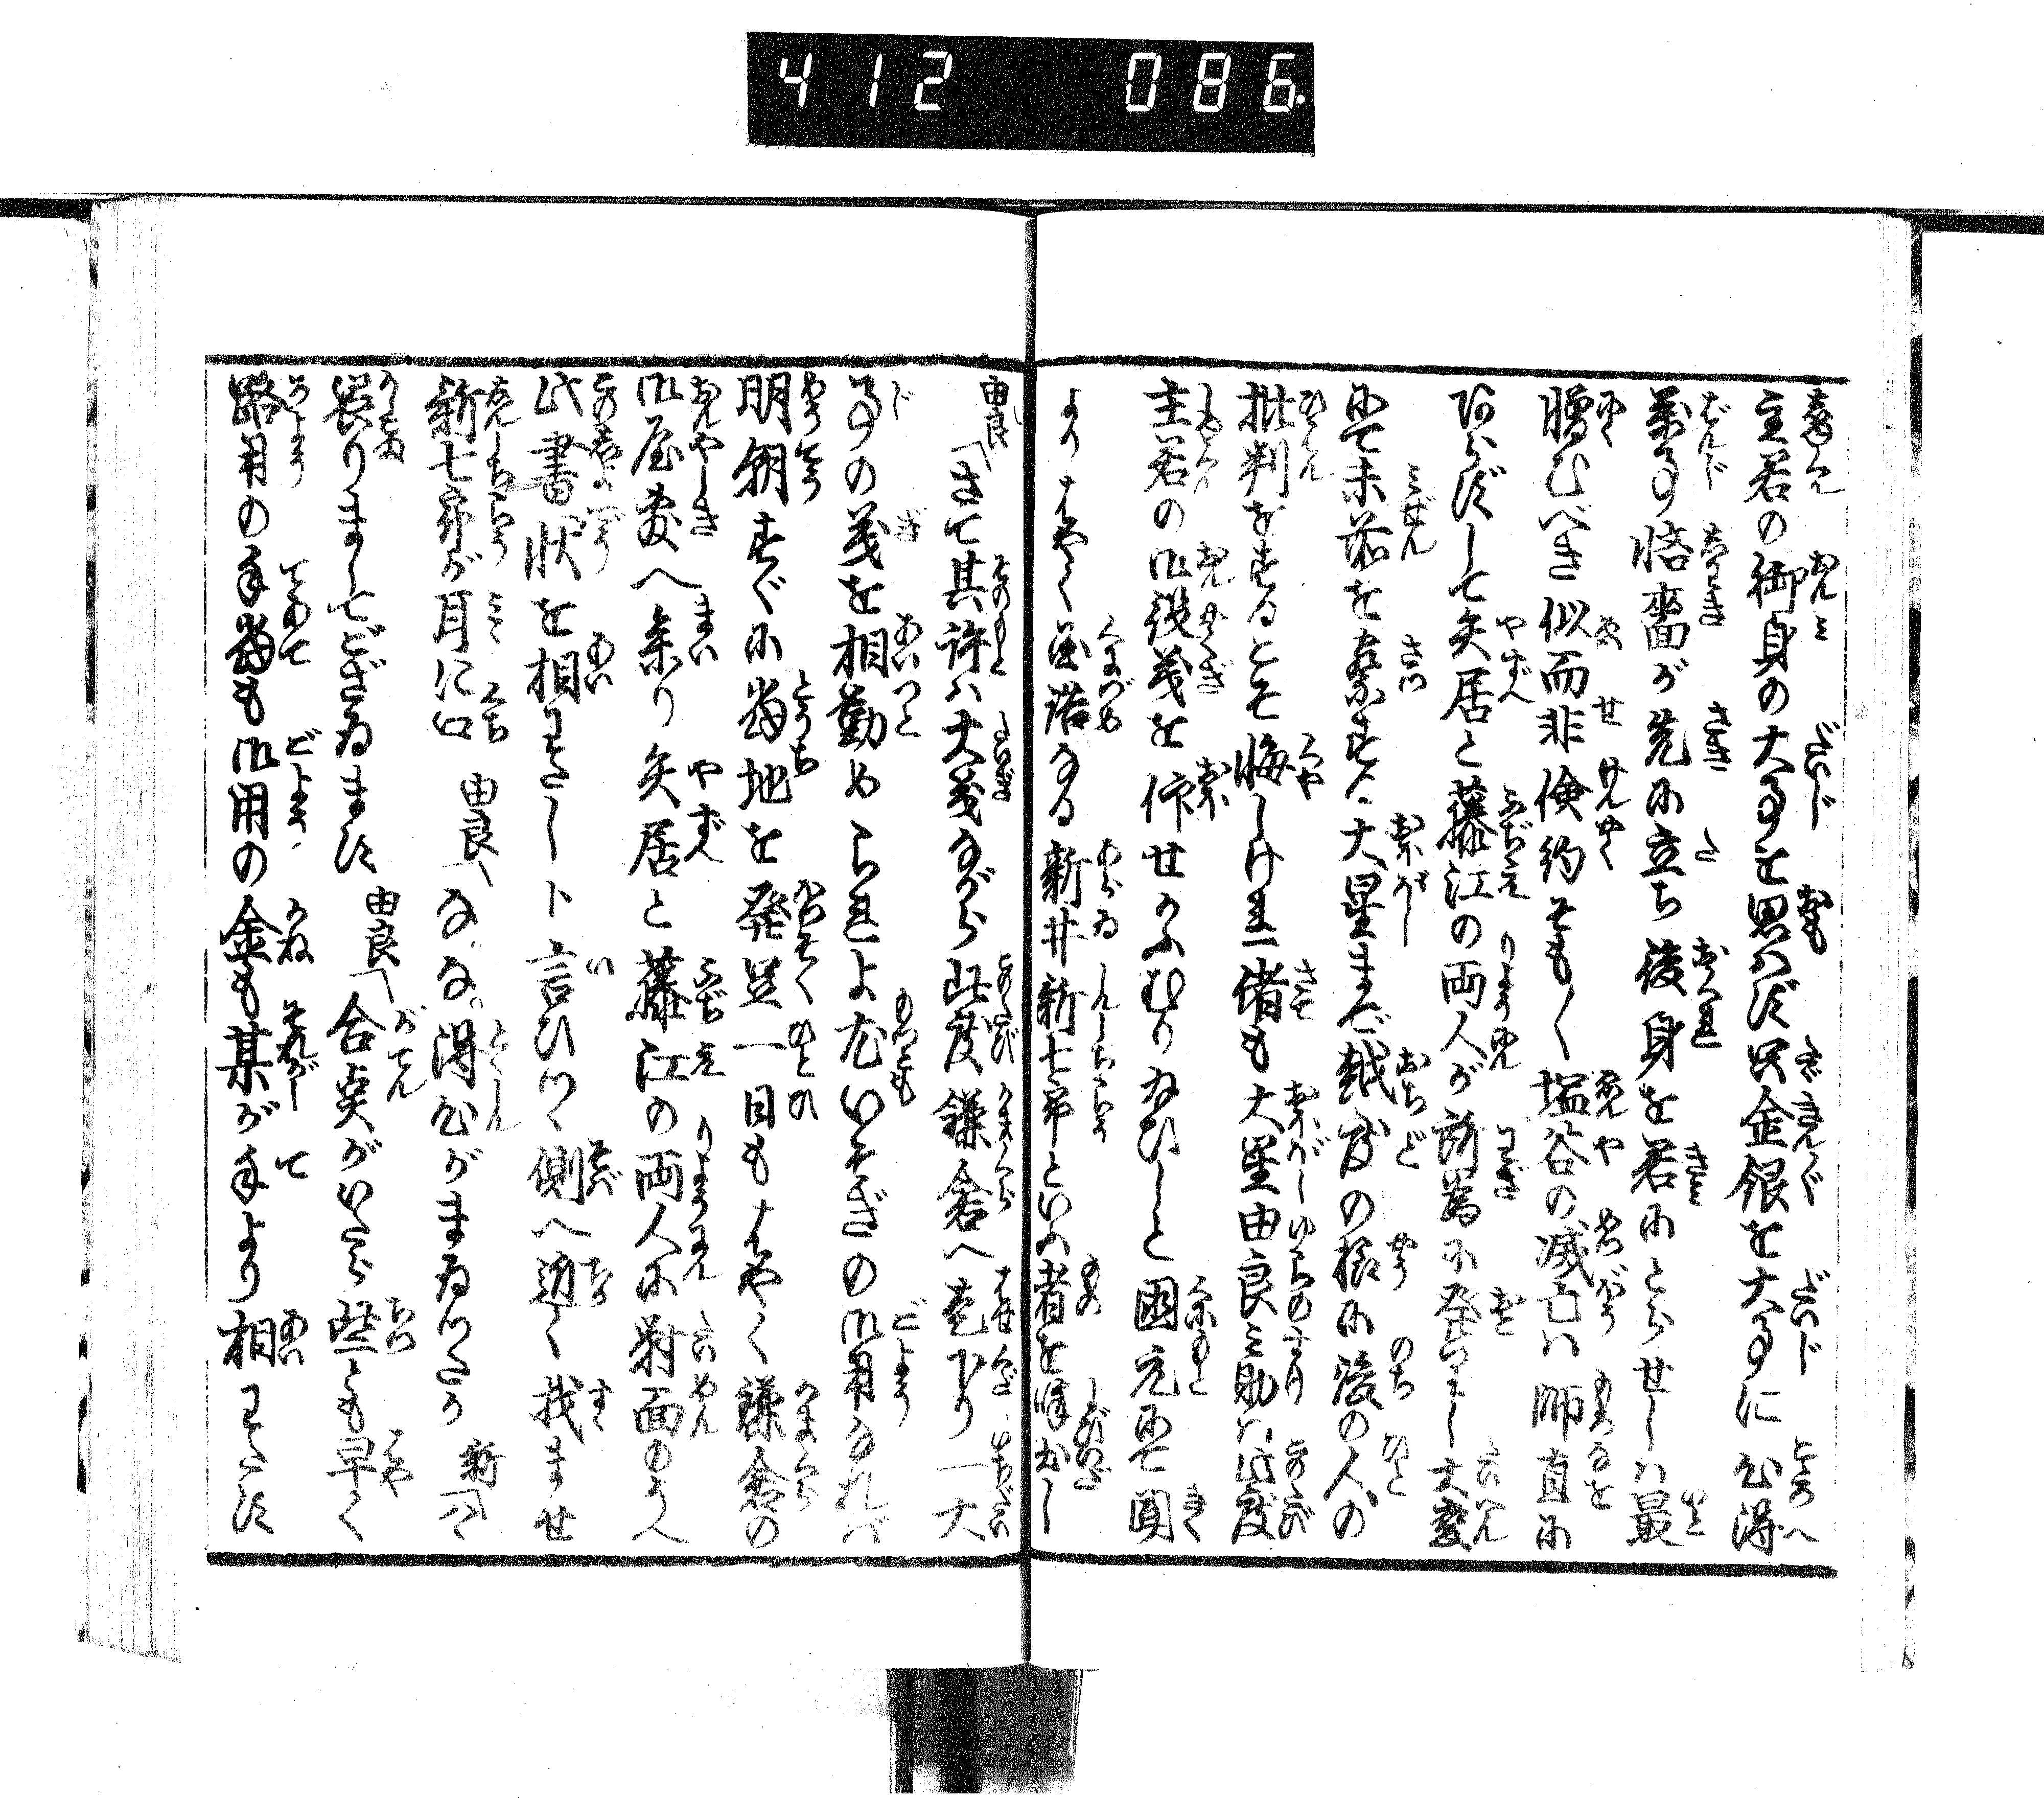 412 086
主君の御身の大事を思はず只金銀を大事に心得
萬事悋嗇が先に立ち後身を君にとらせしは最
膽むべき似而非倹約そも〳〵塩谷の滅亡は師直に
あらずして矢居と藤江の両人が所爲に発りし大変
にて未前を察す大星まで越度の様に後の人の
批判をするこそ悔しけれ偖も大星由良之助は此度
主君の御役義を仰せかふむり給ひしと國元にて聞
よりはやく國詰なる新井新七郎といふ者を呼出し
由良「さて其許は大義ながら此度鎌倉へ走下り一大
事の義を相勤めらるよ尤いそぎの御用なれば
明朝すぐに當地を発足一日もはやく鎌倉の
御屋敷へ参り矢居と藤江の両人に対面のうへ
此書状を相わたしト言ひつゝ側へ近く我ませ
新七郎が耳に口 由良「な、な。得心がまゐつたか 新「ハヽ
畏りましてござゐます 由良「合点がいたら些とも早く
路用の手當も御用の金も某が手より相わたす